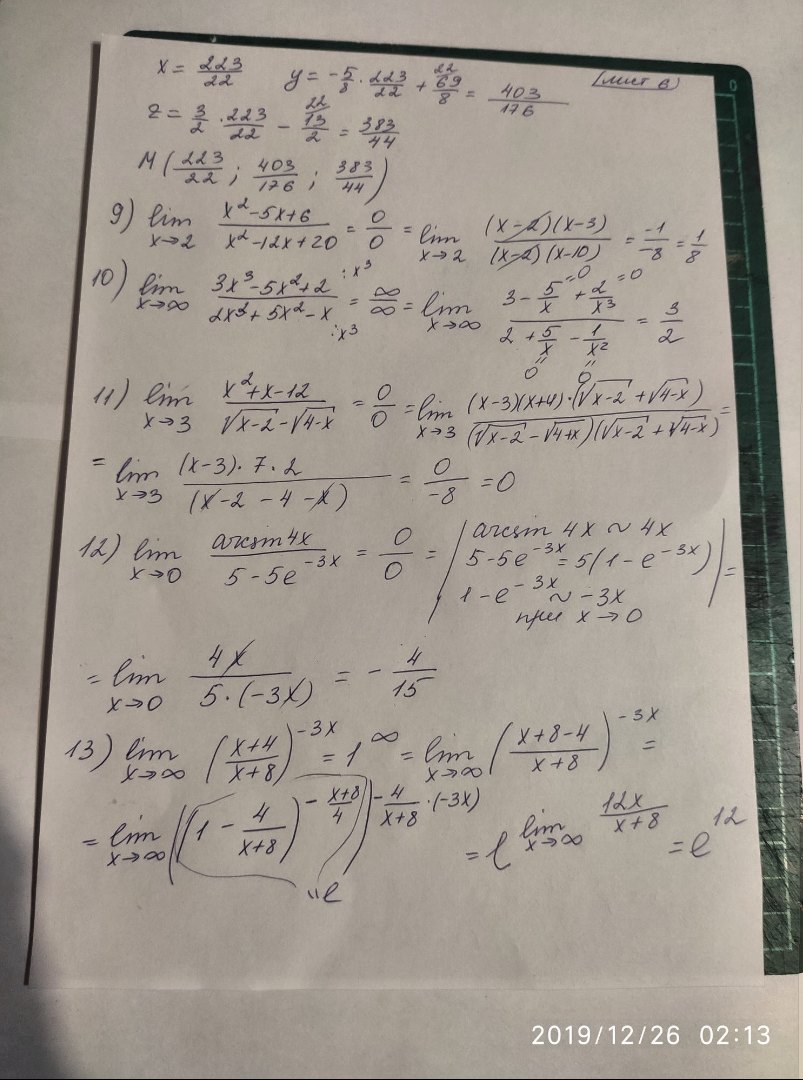 (лист 6)
x = 223/22 y = -5/8 · 223/22 + 69/8 (22 = 403/176
z = 3/2 · 223/22 - 13/2 (22 = 383/44
M(223/22 ; 403/176 ; 383/44)
9) lim x→2 (x²-5x+6)/(x²-12x+20) = 0/0 = lim x→2 ((x-2)(x-3))/((x-2)(x-10)) = -1/-8 = 1/8
10) lim x→∞ (3x³-5x²+2)/(2x³+5x²-x) :x³ :x³ = ∞/∞ = lim x→∞ (3 - 5/x + 2/x³)/(2 + 5/x - 1/x²) = 3/2
=0 =0
"0 "0
11) lim x→3 (x²+x-12)/(√x-2 - √4-x) = 0/0 = lim x→3 ((x-3)(x+4)·(√x-2 + √4-x))/((√x-2 - √4+x)(√x-2 + √4-x)) =
= lim x→3 ((x-3)·7·2)/(x-2-4-x) = 0/-8 = 0
12) lim x→0 (arcsin4x)/(5-5e^-3x) = 0/0 = | arcsin 4x ~ 4x
5-5e^-3x = 5(1-e^-3x)
1-e^-3x ~ -3x
при x→0 | =
= lim x→0 4x/(5·(-3x)) = -4/15
13) lim x→∞ ((x+4)/(x+8))^-3x = 1^∞ = lim x→∞ ((x+8-4)/(x+8))^-3x =
= lim x→∞ ((1 - 4/(x+8))^-(x+8)/4)^-4/(x+8)·(-3x) = e^lim x→∞ 12x/(x+8) = e^12
"e
2019/12/26 02:13